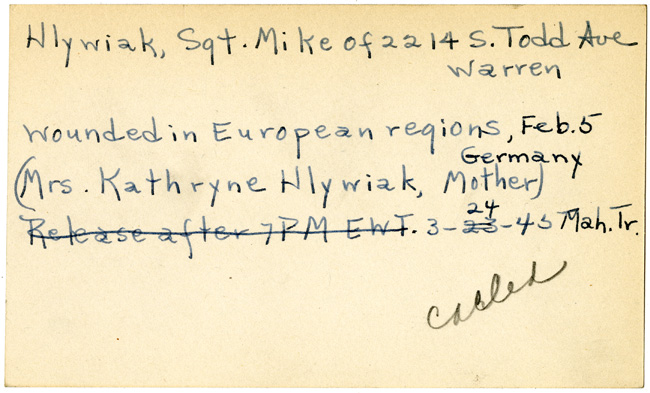 Hlywiak, Sgt. Mike of 2214 S. Todd Ave
Warren
wounded in European regions, Feb. 5
Germany
(Mrs. Kathryne Hlywiak, Mother)
Release after 7PM EWT. 3-23-45 Mah. Tr.
24